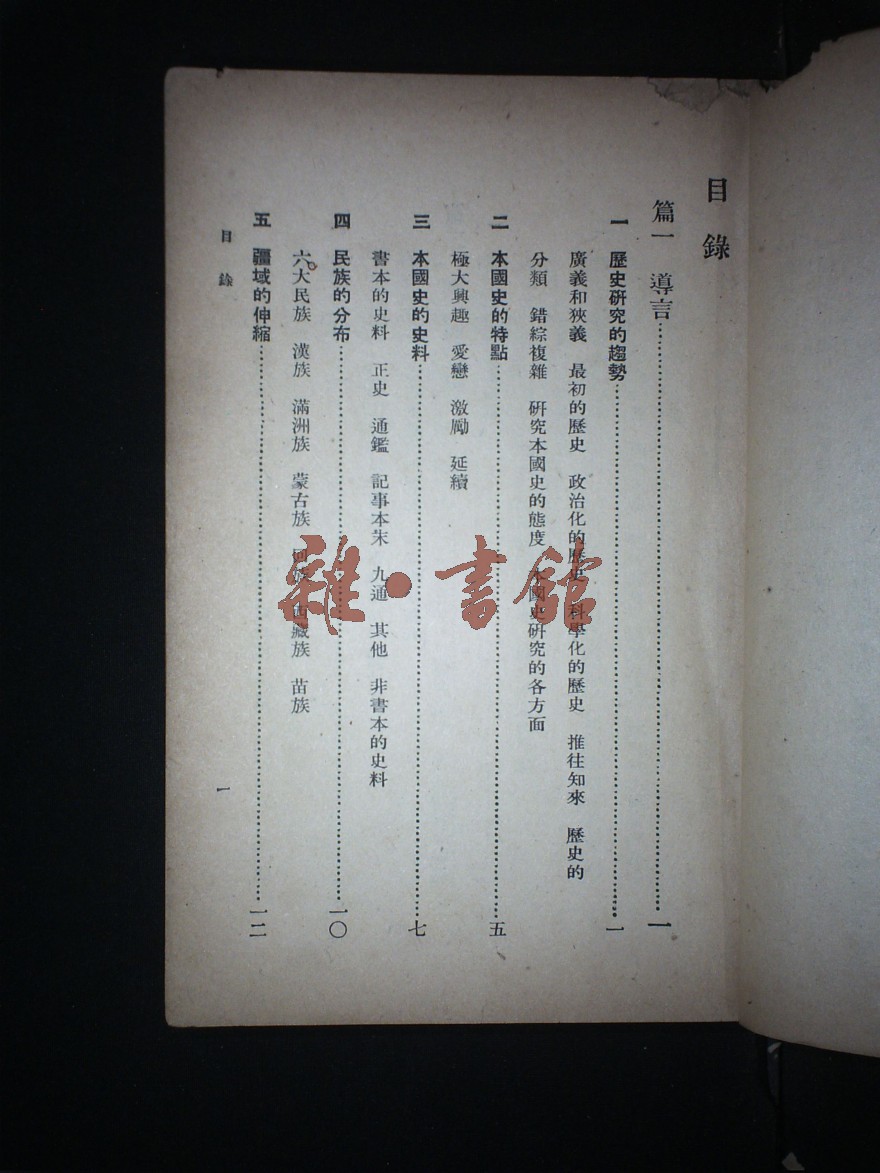 目錄
篇一 導言……一
一 歷史研究的趨勢……一
廣義和狹義 最初的歷史 政治化的歷史 科學化的歷史 推往知來 歷史的
分類 錯綜複雜 研究本國史的態度 本國史研究的各方面
二 本國史的特點……五
極大興趣 愛戀 激勵 延續
三 本國史的史料……七
書本的史料 正史 通鑑 記事本末 九通 其他 非書本的史料
四 民族的分布……一〇
六大民族 漢族 滿洲族 蒙古族 回族 藏族 苗族
五 疆域的伸縮……一二
目錄
一
雜·書館